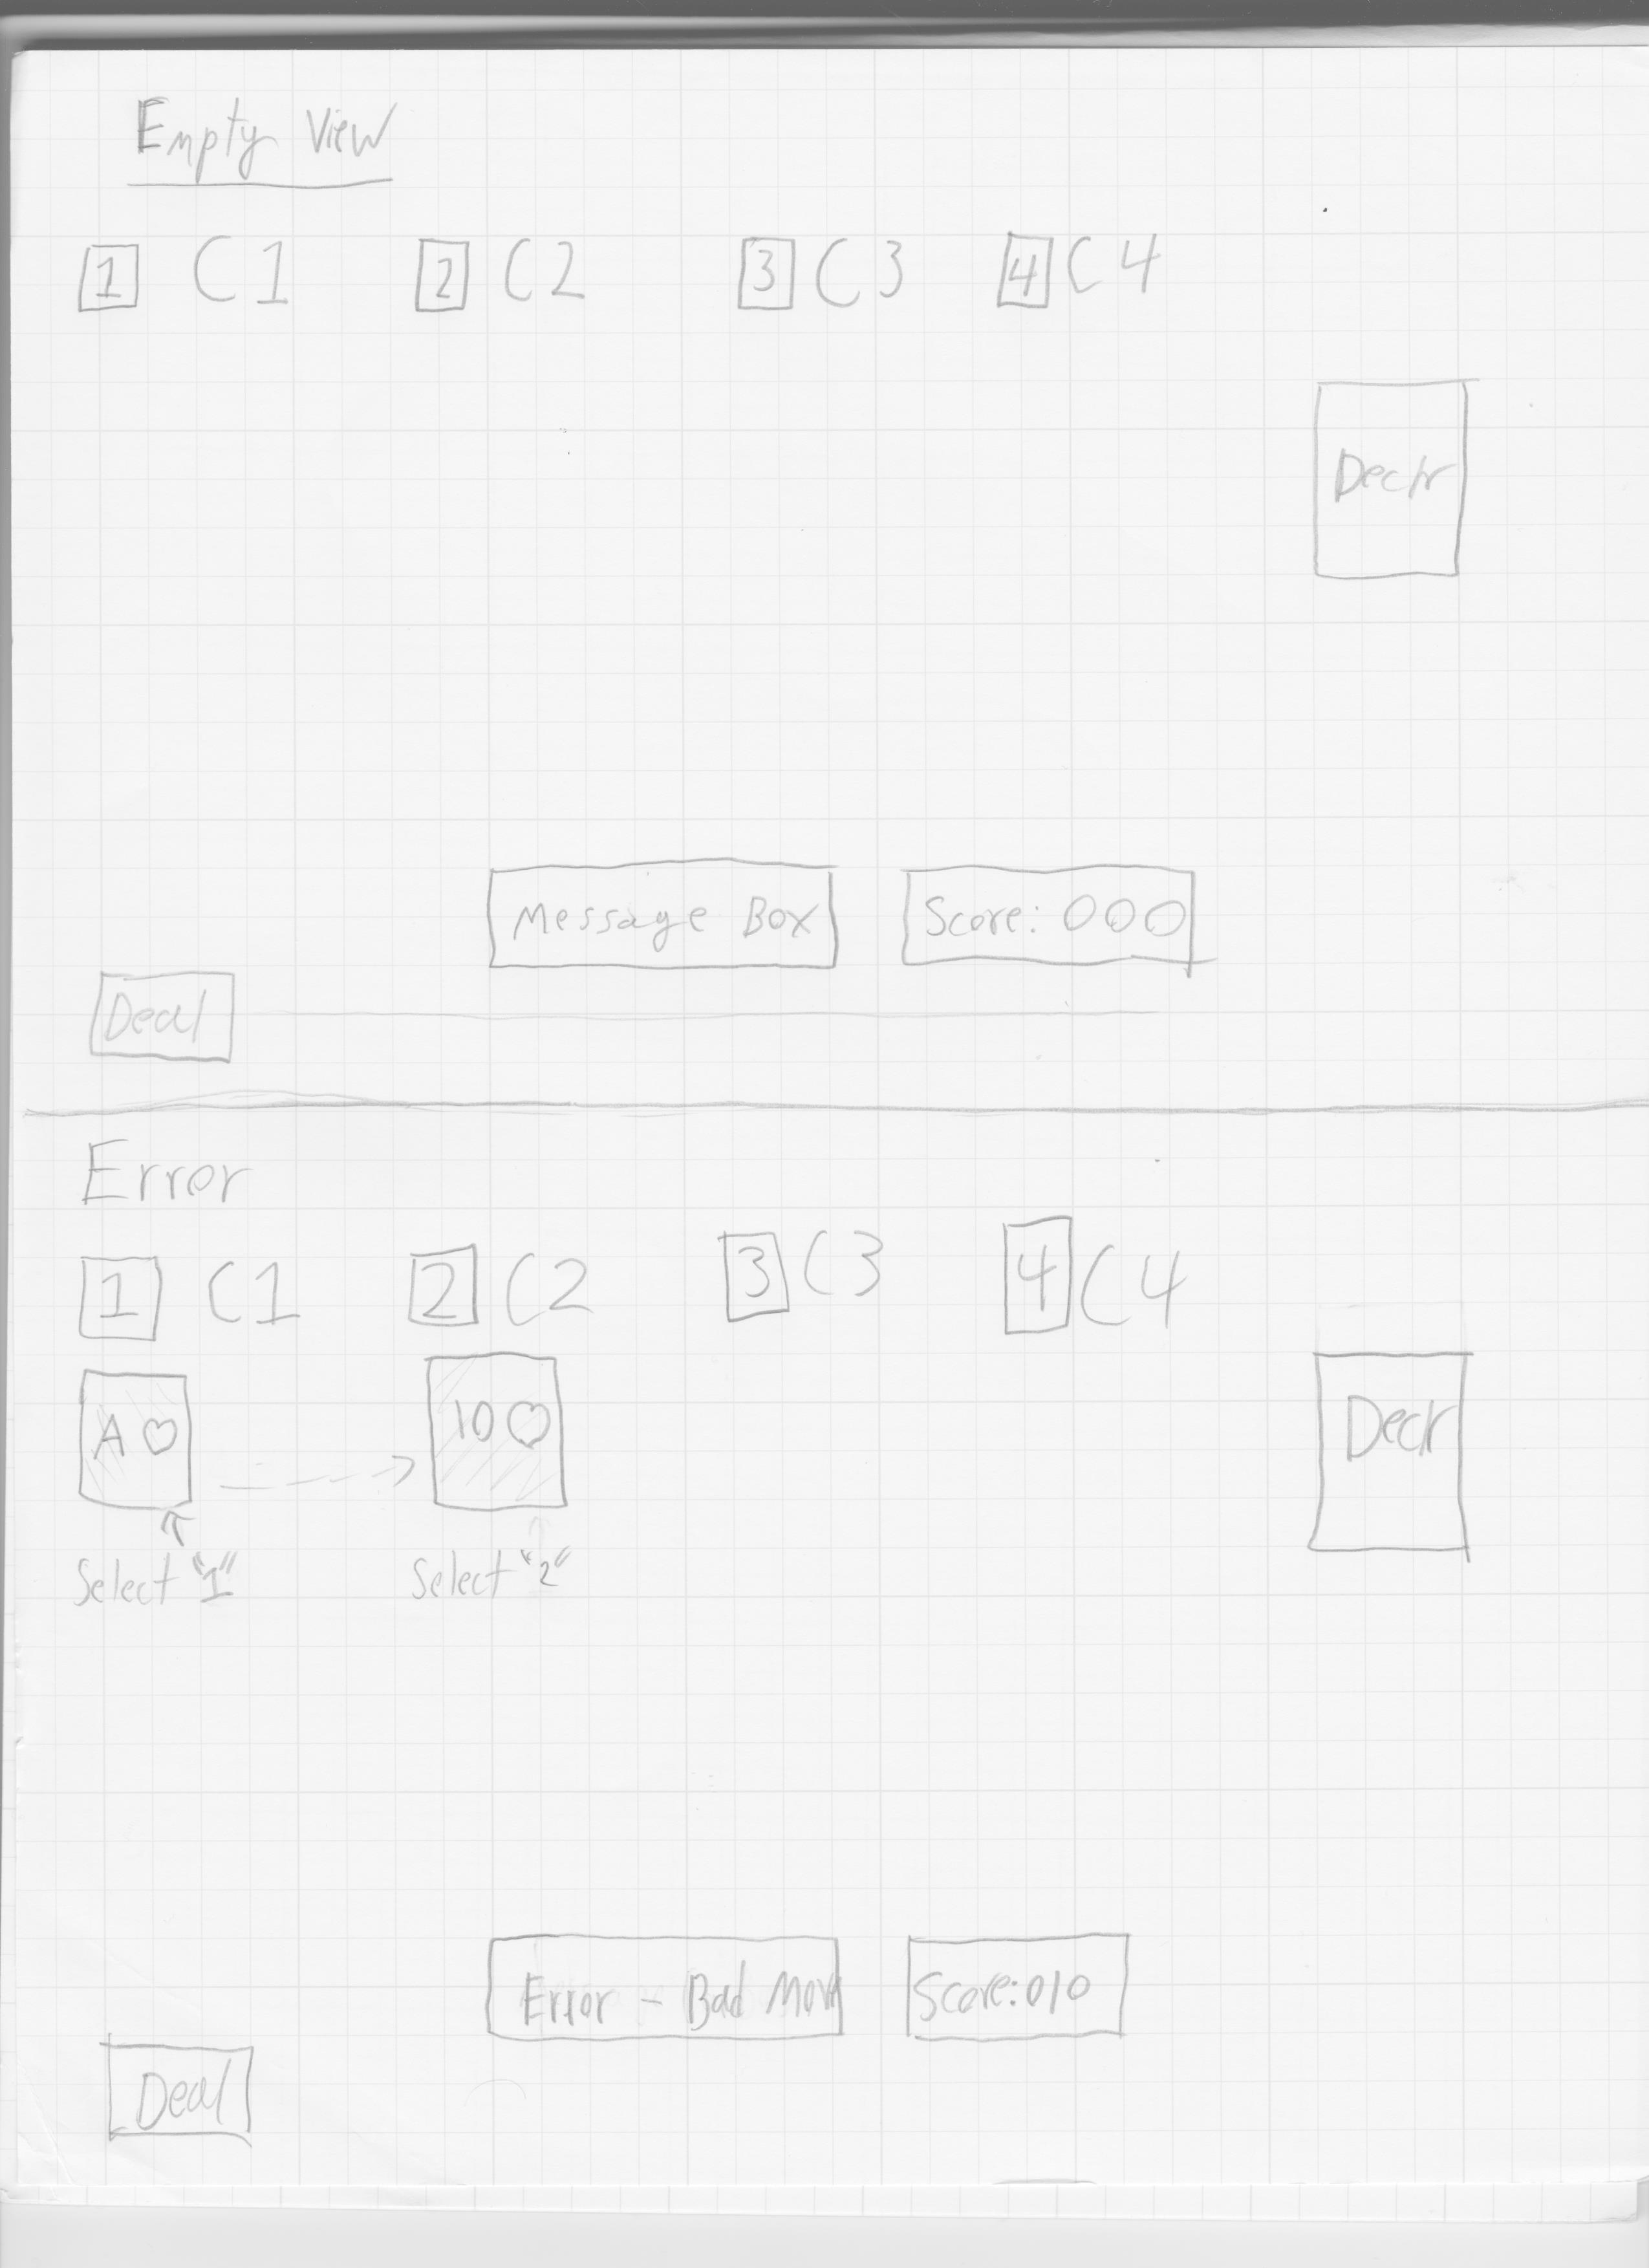 Empty View
1 C1 2 C2 3 C3 4 C4
Deck
Message Box Score: 000
Deal
Error
1 C1 2 C2 3 C3 4 C4
A♡ 10♡ Deck
Select "1" Select "2"
Error - Bad Move Score: 010
Deal